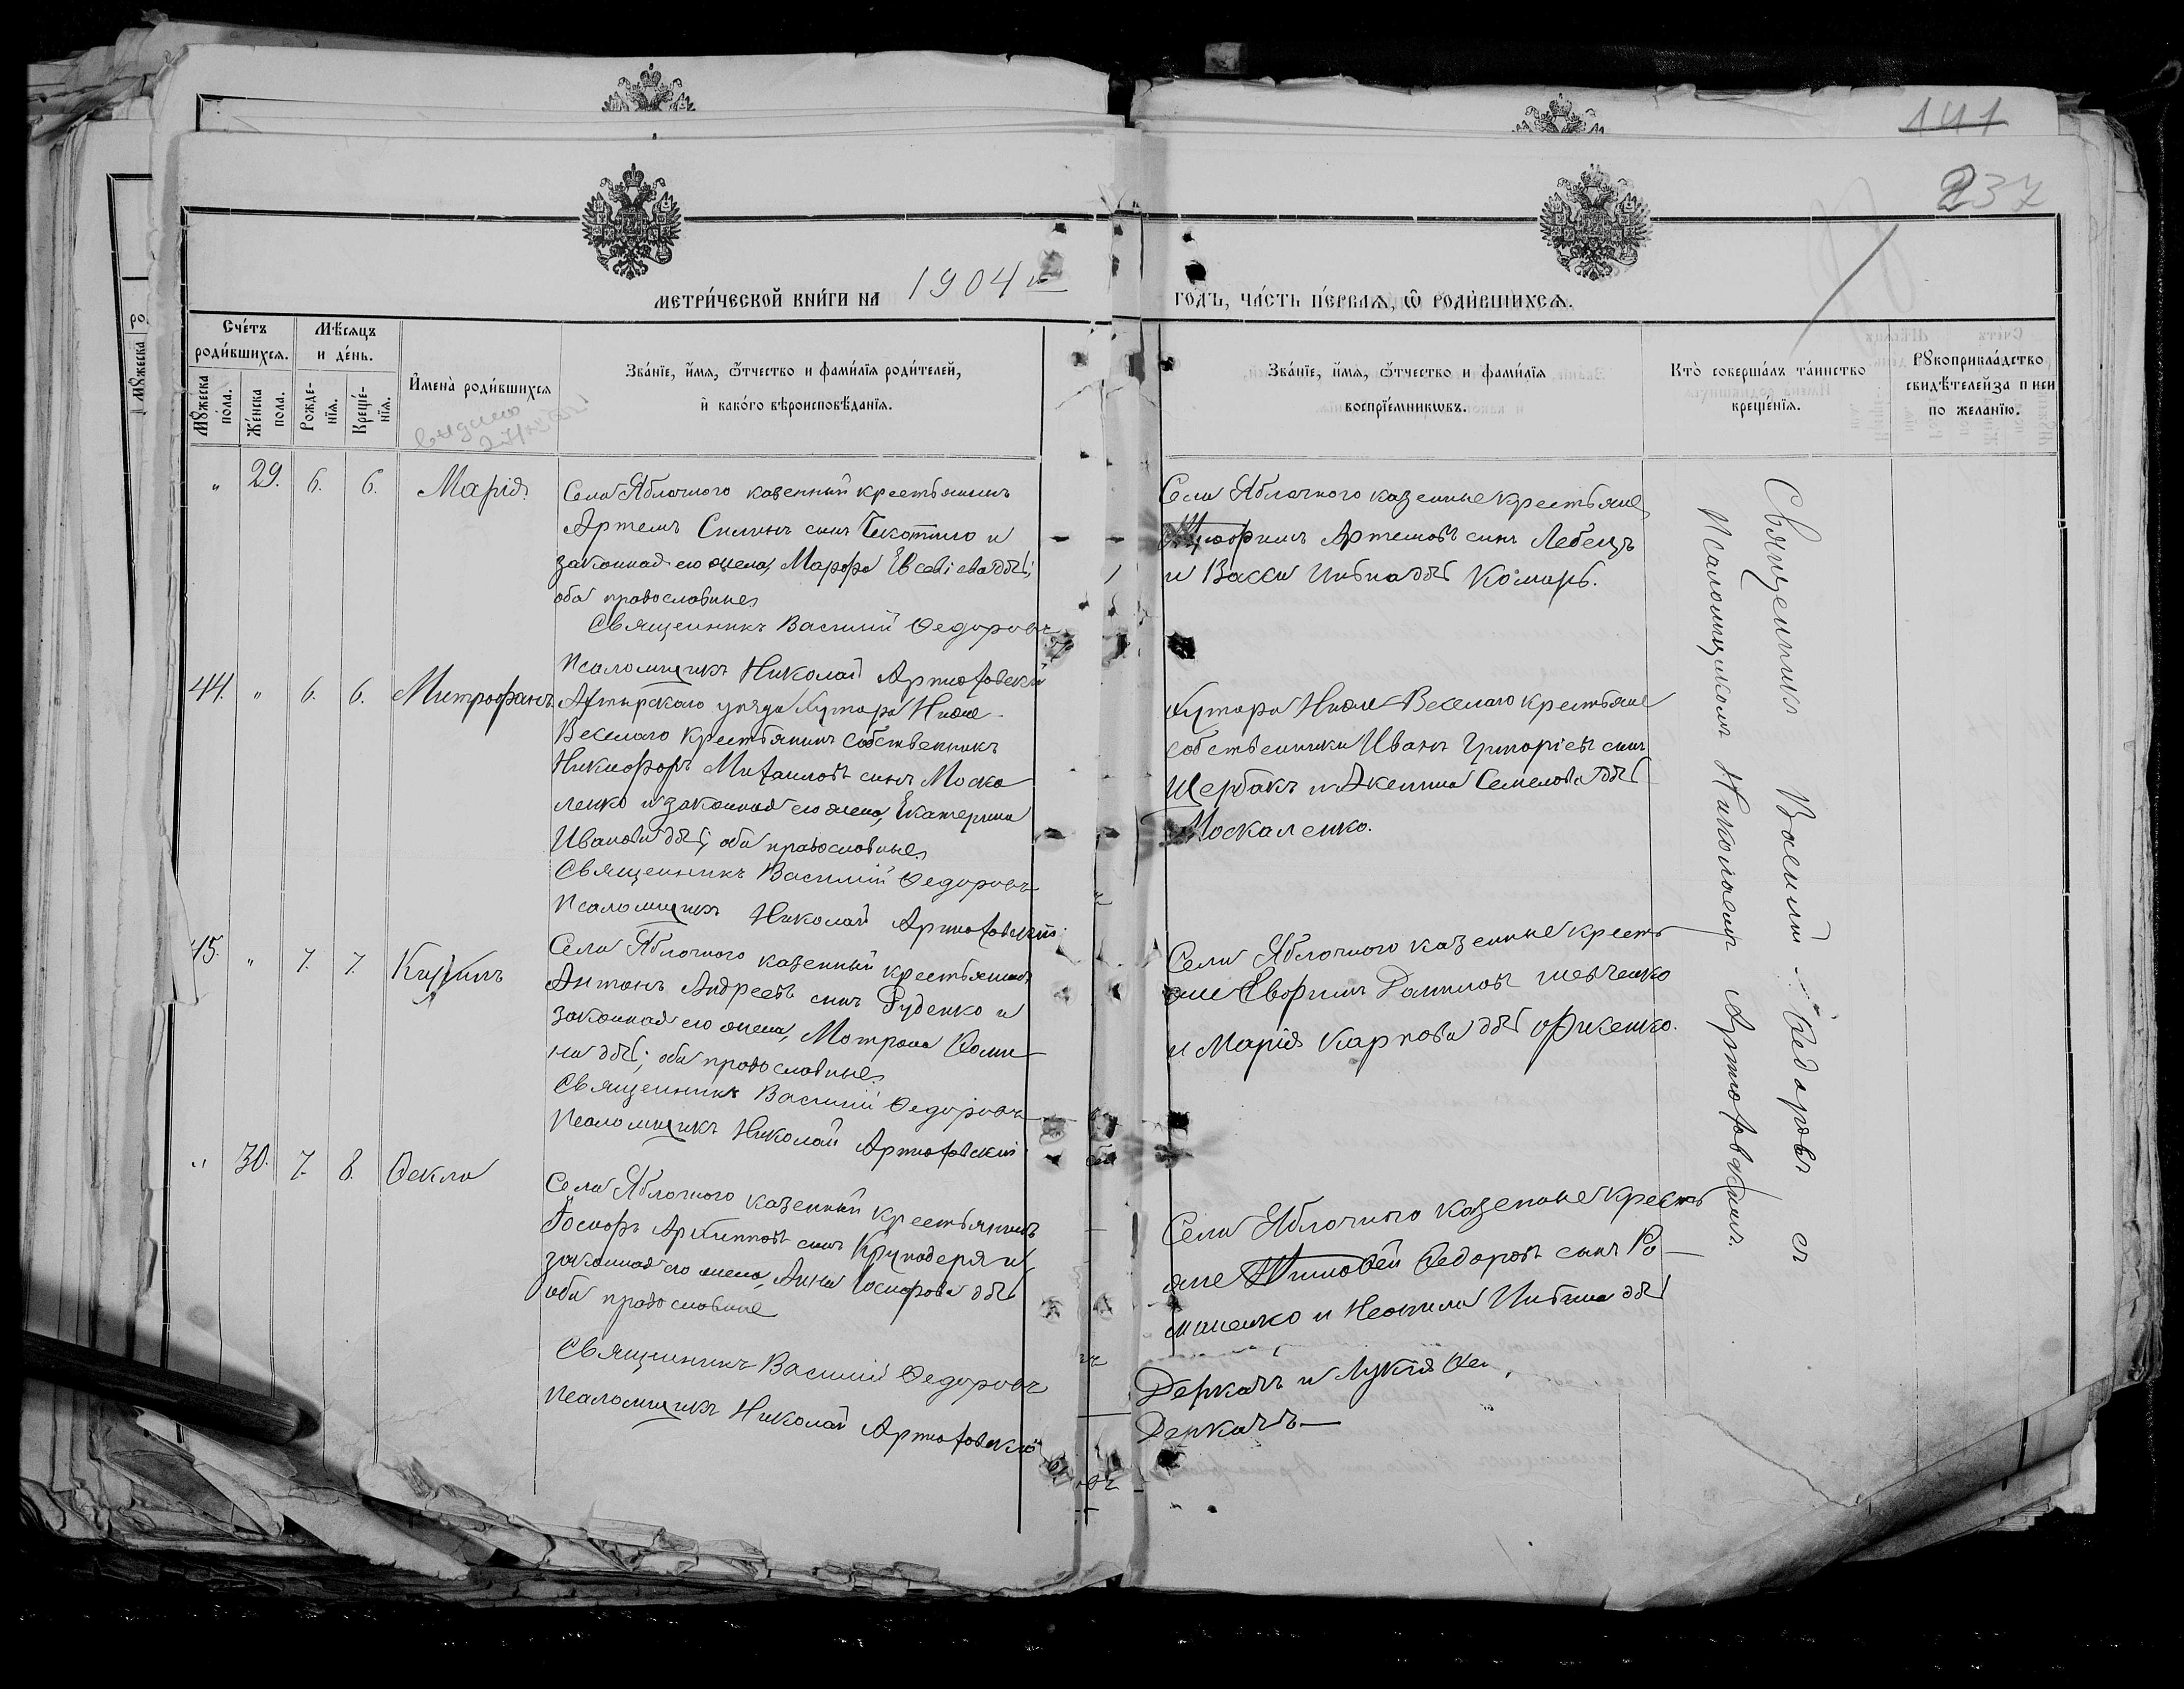 141
237
МЕТРИ́ЧЕСКОЙ КНИ́ГИ НА 1904 г.
ГО́ДЪ, ЧА́СТЬ ПЕ́РВАѦ, Ѿ РОДИ́ВШИХСѦ.
Сче́тъ роди́вшихсѧ.
Мꙋжеска по́ла.
Же́нска пола.
Мѣ́сѧцъ и де́нь.
Рожде-нїѧ.
Креще́-нїѧ.
И҆мена̀ роди́вшихсѧ
Зва́нїе, и҆́мѧ, ѻ҆́тчество и фами́лїѧ роди́телей,
и҆ како́го вѣроисповѣ́данїѧ.
Зва́нїе, и҆́мѧ, ѻ҆́тчество и фами́лїѧ
воспрїе́мникѡвъ.
Кто̀ соверша́лъ та́инство
креще́нїѧ.
Рꙋкоприкла́дство
свидѣ́телей за п
по жела́нїю.
" 29. 6. 6. Марія
Села Яблочного казенный крестьянинъ
Артемъ Силинъ сынъ и
законная его жена, Марфа Евсеіева дбг;
оба православные
Священникъ Василій Ѳедоровъ
Псаломщикъ Николай Артюховскій
Села Яблочного казенные крестьяне
Артемовъ сынъ Лебедь
и Васса дбг Комирь.
44. " 6. 6. Митрофанъ
Ахтырскаго уѣзда Хутора Ниже-
Веселаго крестьянинъ собственникъ
Никифоръ Михаиловъ сынъ Моска
ленко и законная его жена, Екатерина
Иванова дбг, оба православные
Священникъ Василій Ѳедоровъ
Псаломщикъ Николай Артюховскій
Хутора Ниже-Веселаго крестьяне
собственники Иванъ Григоріевъ сынъ
Щербакъ и Акелина Семенова дбг
Москаленко.
45. " 7. 7. Кириллъ
Села Яблочного казенный крестьянинъ
Антонъ Андреевъ сынъ Руденко и
законная его жена, Мотрона Ѳоми
на дбг; оба православные
Священникъ Василій Ѳедоровъ
Псаломщикъ Николай Артюховскій
Села Яблочного казенные кресть
яне Даниловъ Шевченко
и Марія Карпова дбг
" 30. 7. 8. Ѳекла
Села Яблочного казенный крестьянинъ
Іосифъ Архиповъ сынъ Круподеря и
законная его жена, Анна Іосифова дбг
оба православные
Священникъ Василій Ѳедоровъ
Псаломщикъ Николай Артюховскій
Села Яблочного казенные кресть
яне Тимофей Ѳедоровъ сынъ Ро-
маненко и Неонила дбг
Деркачъ и Лукія
Деркачъ
Священникъ Василій Ѳедоровъ съ
Псаломщикомъ Николаемъ Артюховскимъ.